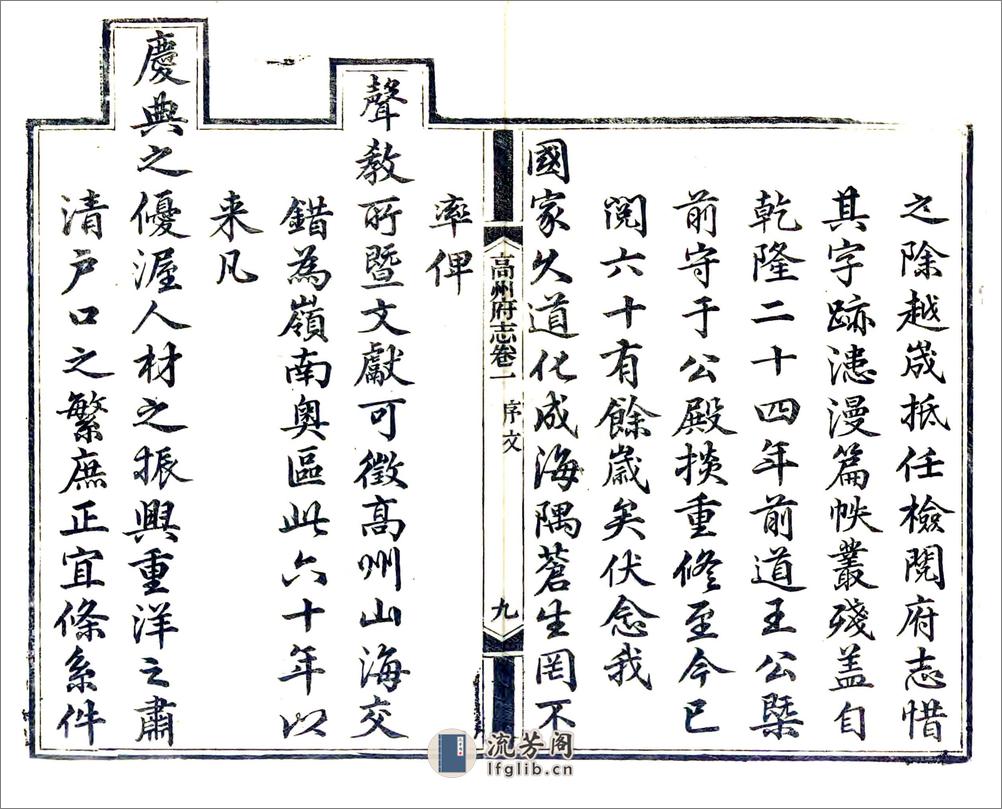 之除越歲抵任檢閱府志惜
其字跡漶漫篇帙叢殘盖自
乾隆二十四年前道王公槩
前守于公殿掞重修至今已
閱六十有餘歲矣伏念我
國家久道化成海隅蒼生罔不
高州府志卷一
序文
九
率俾
聲教所暨文獻可徵高州山海交
錯為嶺南奥區此六十年以
来凡
慶典之優渥人材之振興重洋之肅
清戸口之繁庶正宜條系件
流芳阁
lfglib.cn